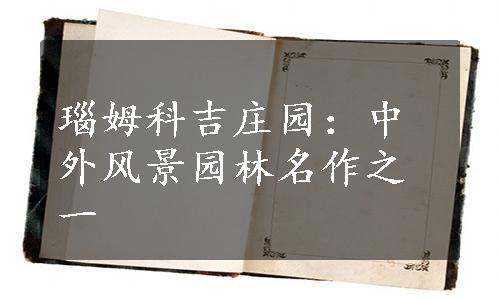 瑙姆科吉庄园：中
外风景园林名作之
一